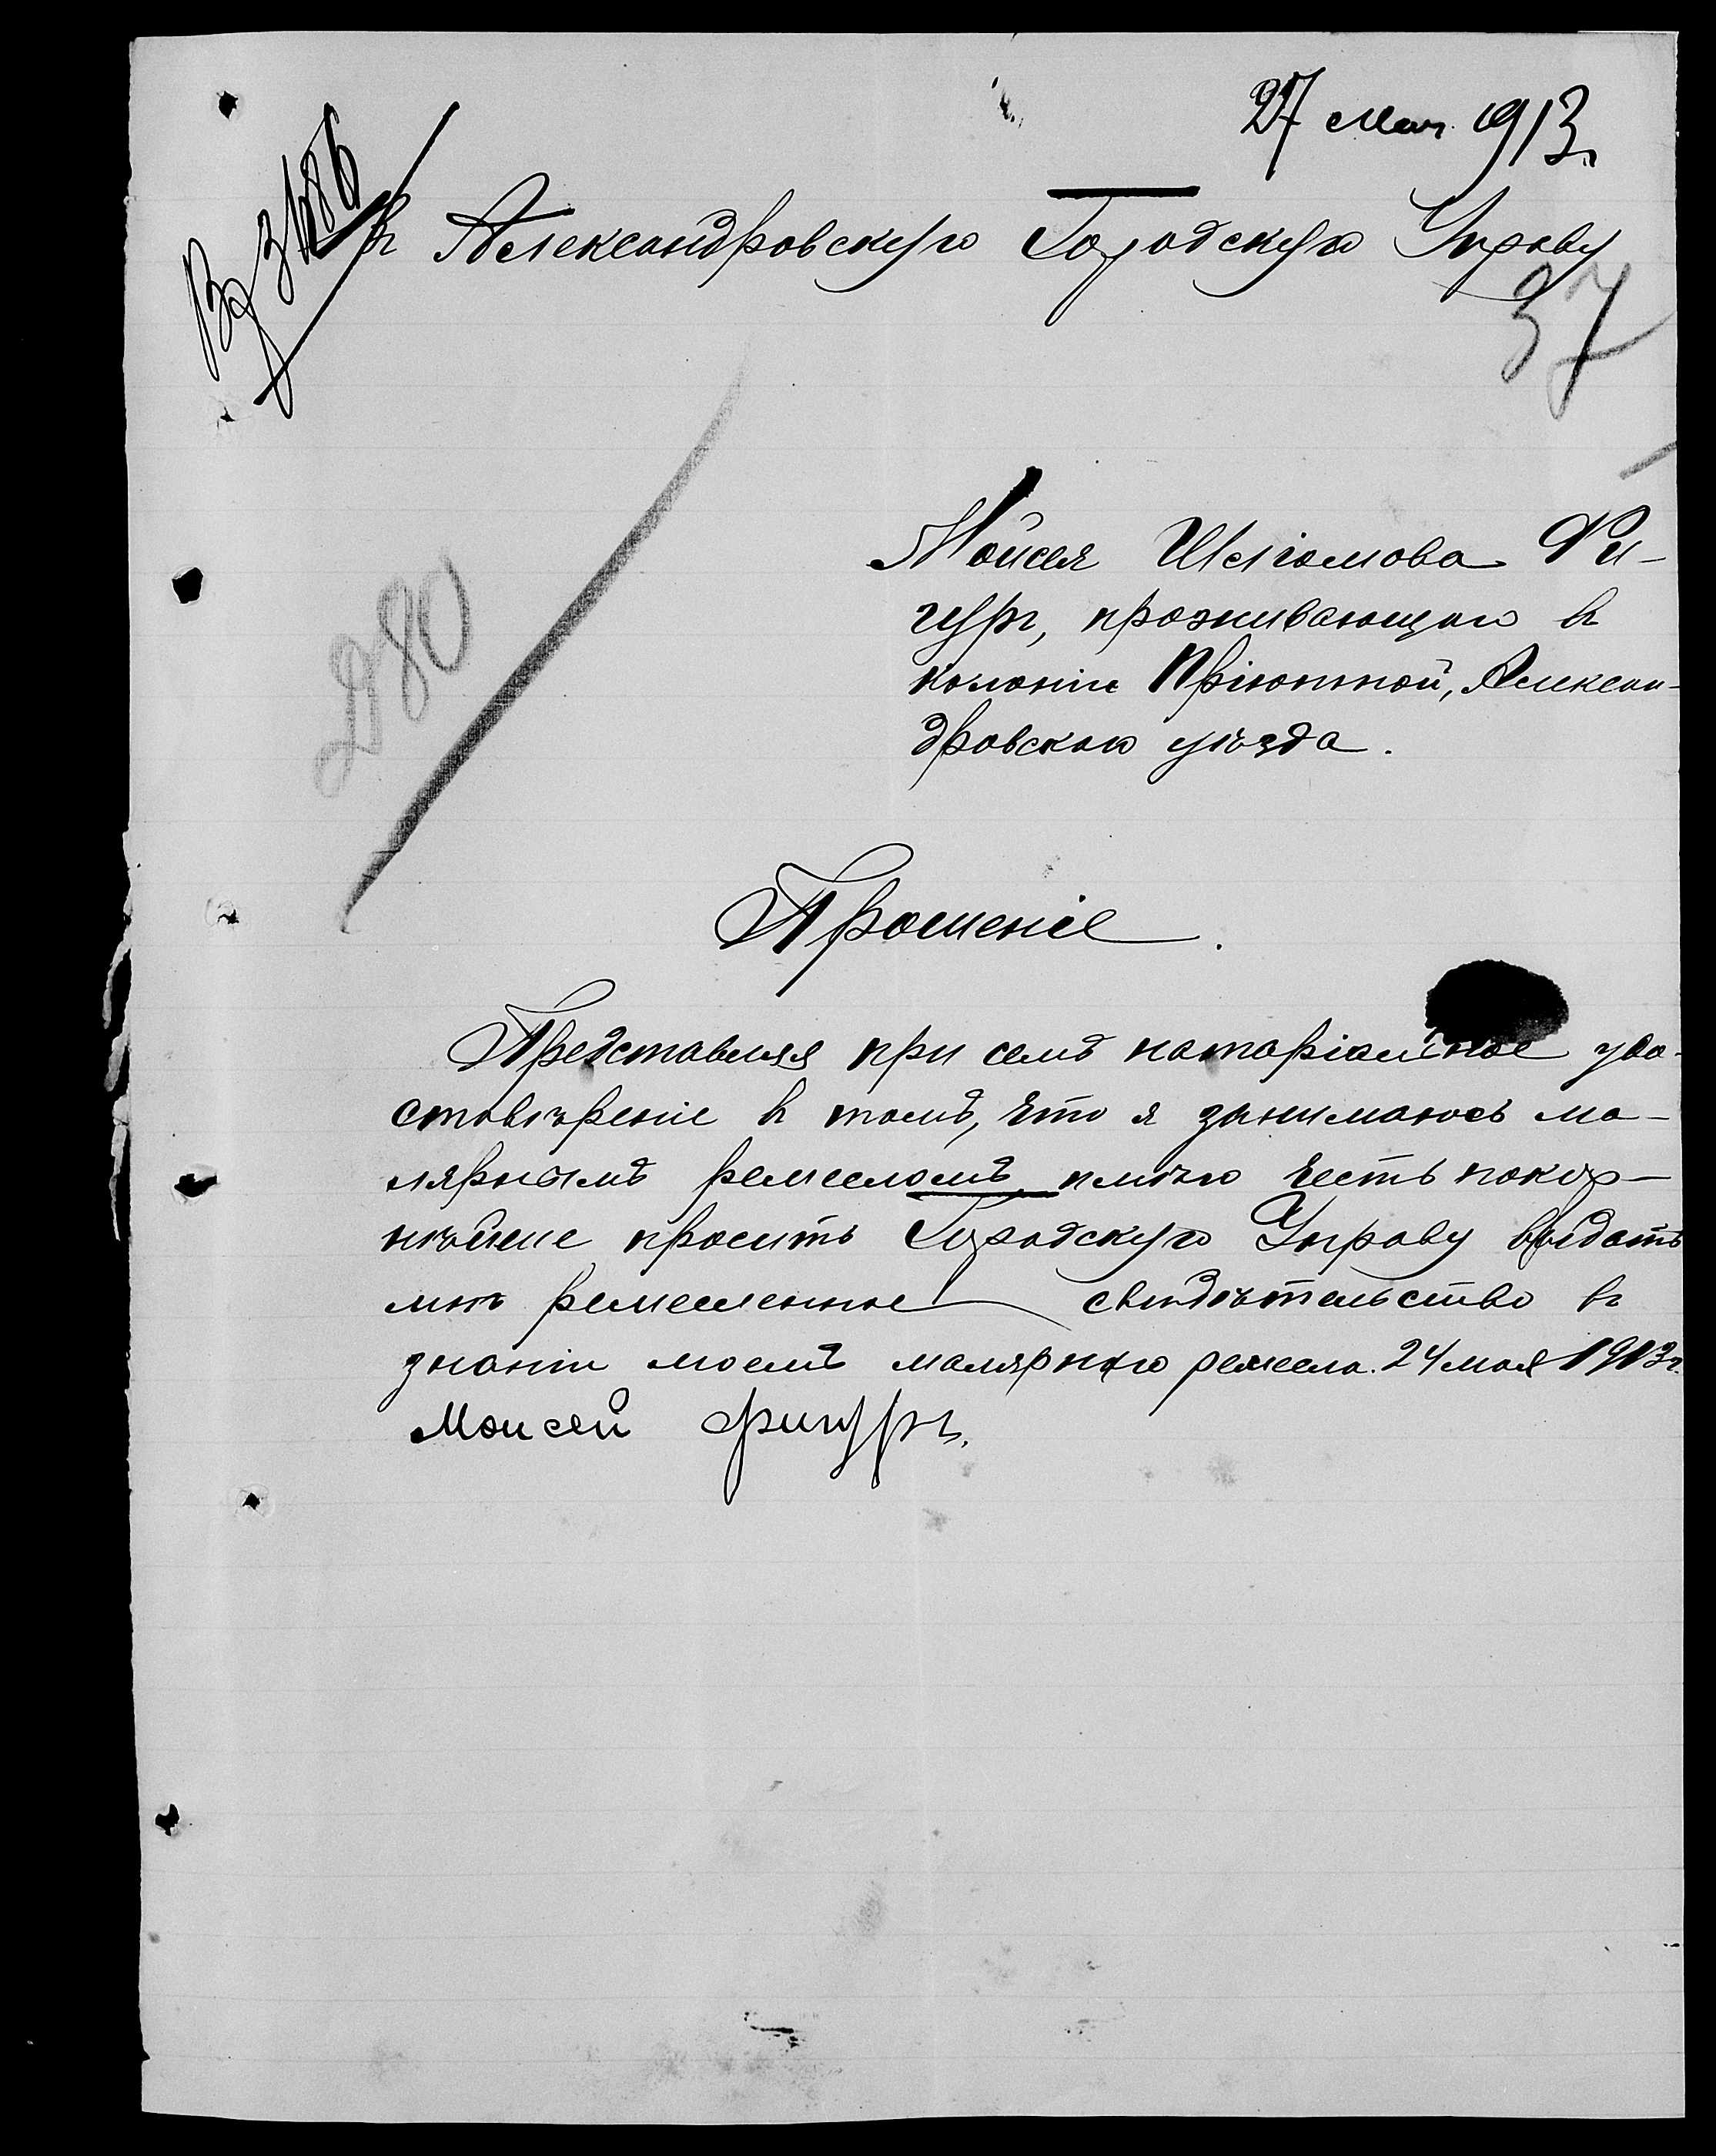 27 мая 1913 г.
Вх 3186
Въ Александровскую Городскую Управу
37
280
Мойсея Шліомова Фи-
гуръ, проживающаго въ
колоніи Пріютной, Алексан-
дровскаго уѣзда.
Прошеніе.
Представляя при семъ нотаріальное удо-
стовѣреніе въ томъ, что я занимаюсь ма-
лярнымъ ремесломъ имѣю честь покор-
нѣйше просить Городскую Управу выдать
мнѣ ремесленное свидѣтельство въ
знаніи моемъ малярнаго ремесла. 24 мая 1913 г.
Моисей Фигуръ.